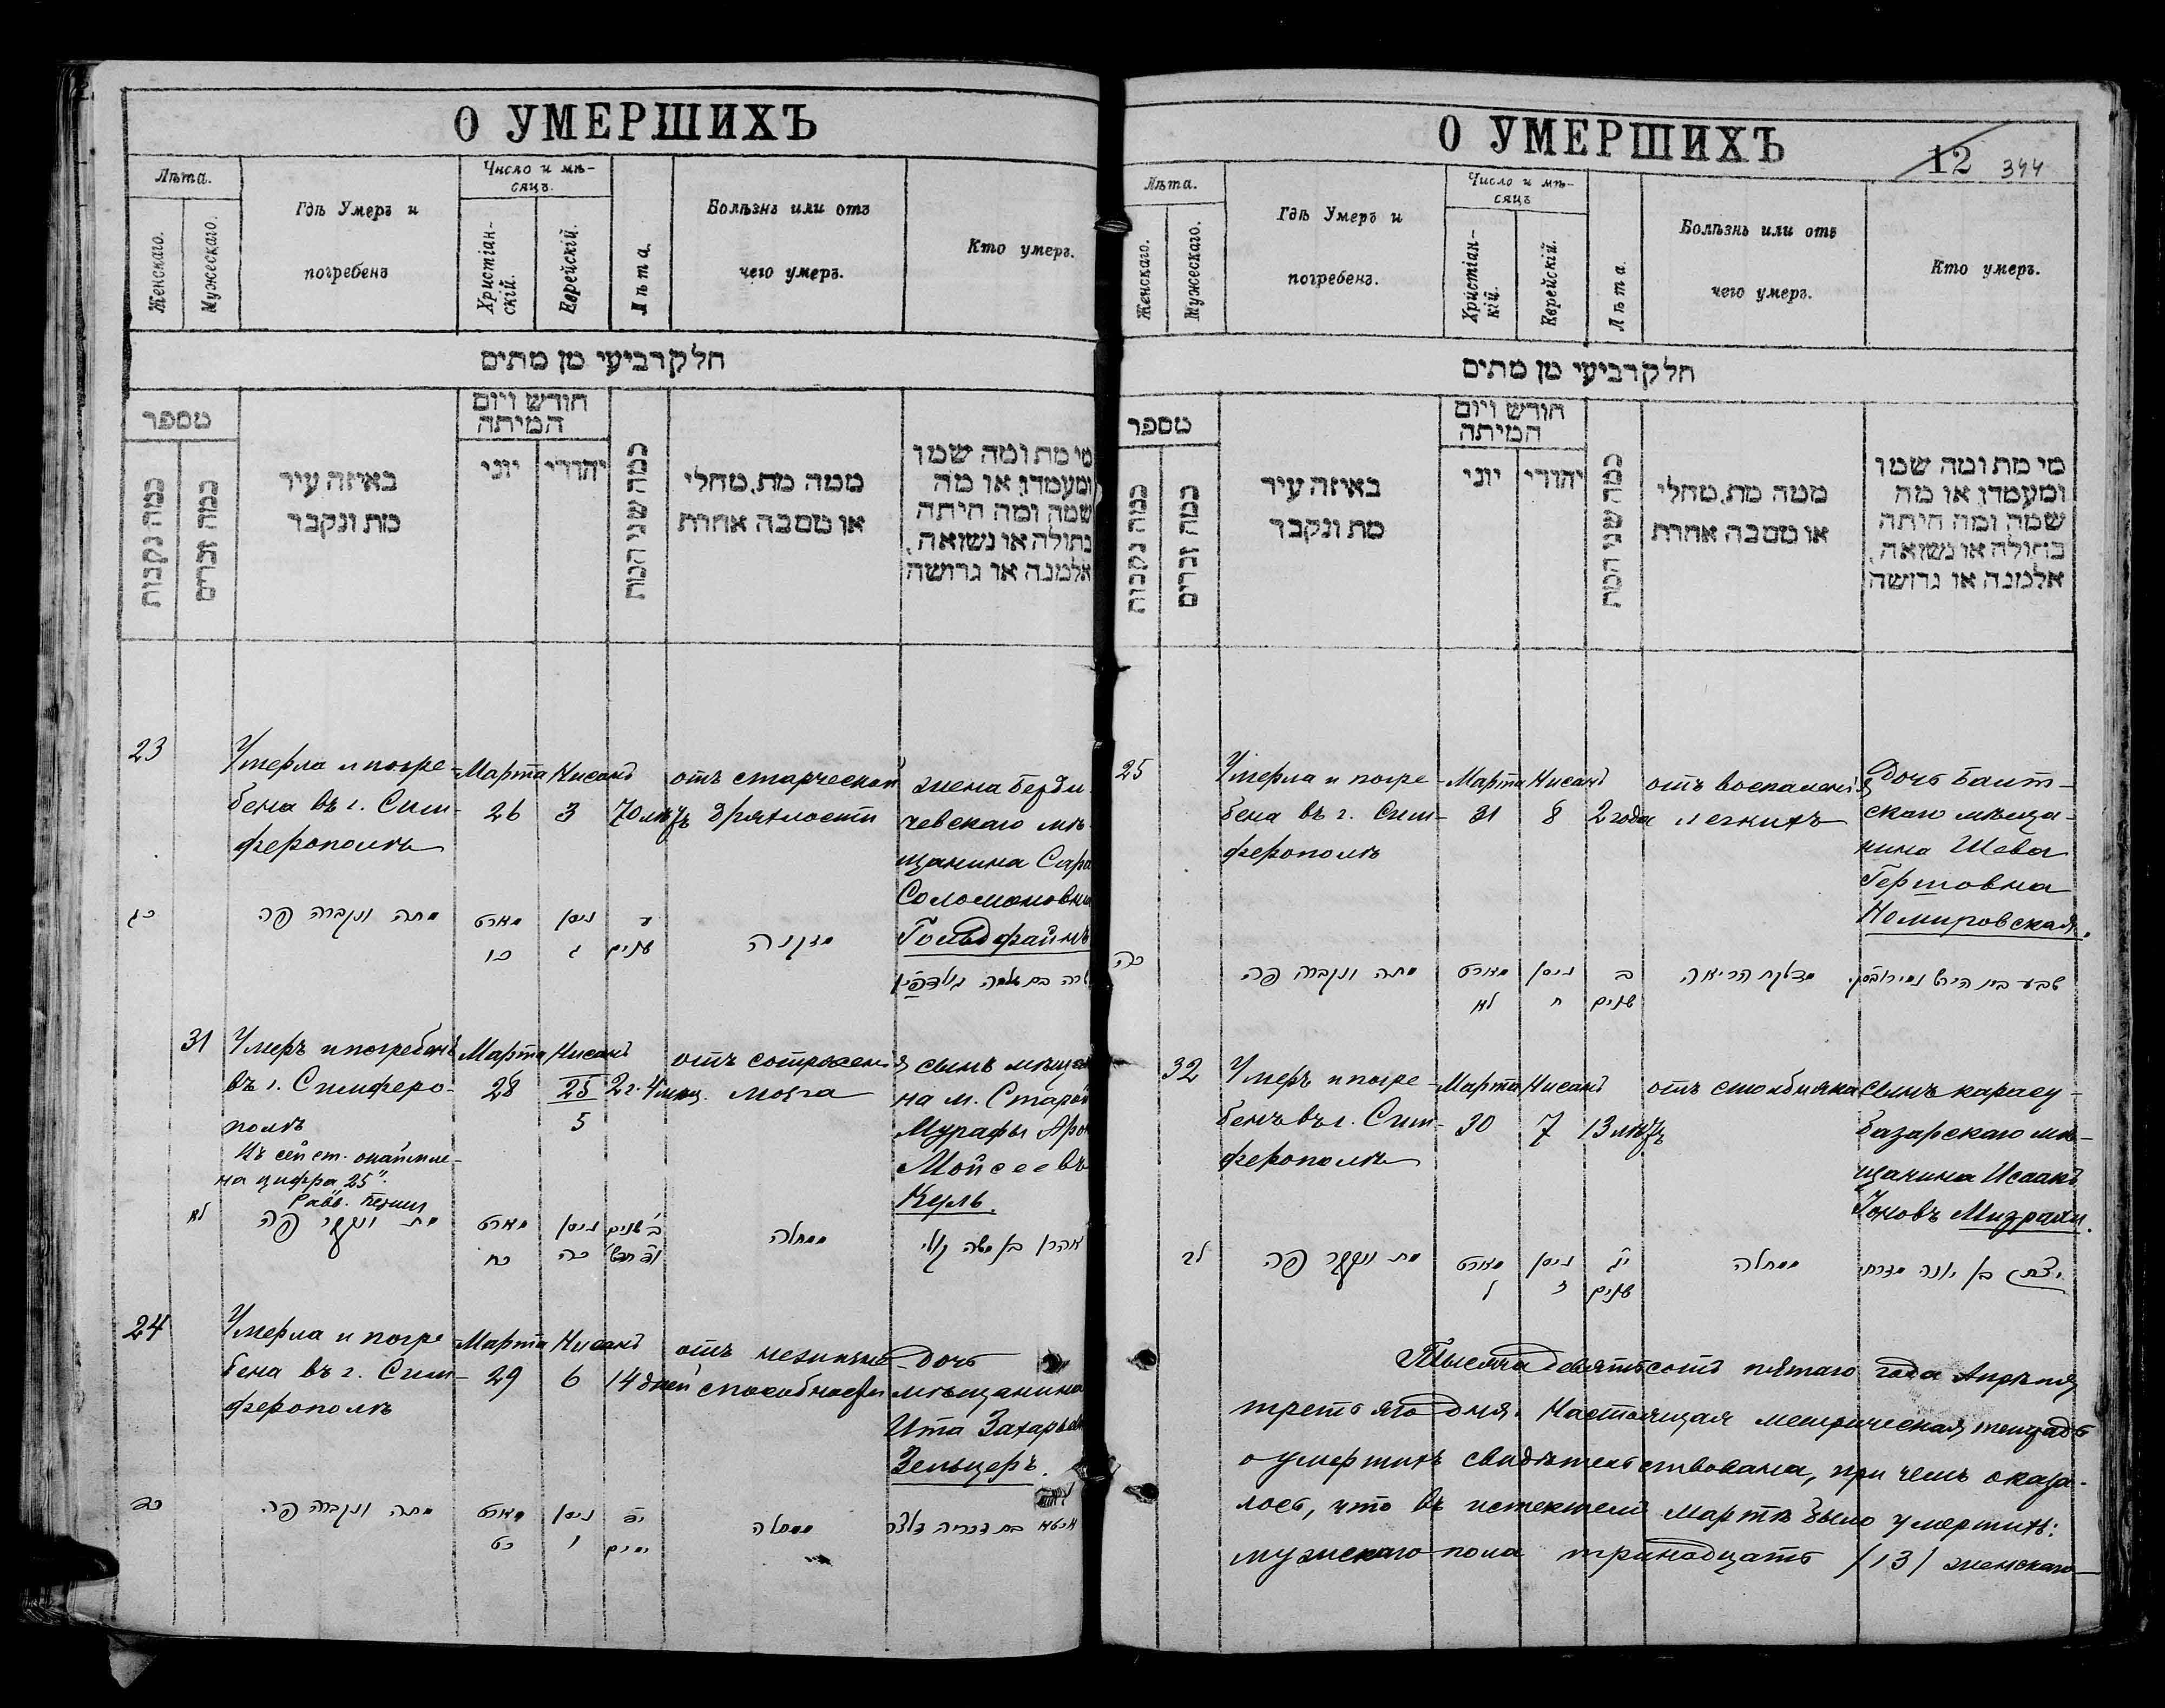 О УМЕРШИХЪ
Лѣта.
Женскаго.
Мужескаго.
Гдѣ Умеръ и
погребенъ
Число и мѣ-
сяцъ.
Христіан-
скій.
Еврейскій.
Лѣта.
Болѣзнь или отъ
чего умеръ.
Кто умеръ.
חלק רביעי מן מתים
מספר
כמה נקבות
כמה זכרים
באיזה עיר
מת ונקבר
חודש ויום
המיתה
יוני
יהודי
כמה שני המת
ממה מת, מחלי
או מסבה אחרת
מי מת ומה שמו
ומעמדו או מה
שמה ומה היתה
בתולה או נשואה,
אלמנה או גרושה
23
Умерла и погре-
бена въ г. Сим-
ферополѣ
Марта
26
Нисанъ
3
70 лѣтъ
отъ старческой
дряхлости
жена Берди-
чевскаго мѣ-
щанина Сара
Соломоновна
Гольдфайнъ
כג
מתה ונקברה פה
מארט
כו
ניסן
ג
ע
שנים
מזקנה
31
Умеръ и погребенъ
въ г. Симферо-
полѣ
Марта
28
Нисанъ
25
5
2 г. 4 мѣц.
отъ сотрясенія
мозга
сынъ мѣщан
на м. Старой
Мурафы Арон
Мойсеевъ
Керль.
Въ сей ст.
на цифра 25".
לא
מת ונקבר פה
מארט
כח
ניסן
כה
ב' שנים
ממחלה
אהרן בן משה
24
Умерла и погре-
бена въ г. Сим-
ферополѣ
Марта
29
Нисанъ
6
14 дней
отъ нежизне-
способности
Дочь
мѣщанина
Ита Захарьевна
Зельцеръ.
כד
מתה ונקברה פה
מארט
כט
ניסן
ו
יד
ימים
ממחלה
איטא בת זכריה זלצר
О УМЕРШИХЪ
12 344
Лѣта.
Женскаго.
Мужескаго.
Гдѣ Умеръ и
погребенъ.
Число и мѣ-
сяцъ
Христіан-
кій.
Еврейскій.
Лѣта.
Болѣзнь или отъ
чего умеръ.
Кто умеръ.
חלק רביעי מן מתים
מספר
כמה נקבות
כמה זכרים
באיזה עיר
מת ונקבר
חודש ויום
המיתה
יוני
יהודי
כמה שני המת
ממה מת, מחלי
או מסבה אחרת
מי מת ומה שמו
ומעמדו או מה
שמה ומה היתה
בתולה או נשואה,
אלמנה או גרושה
25
Умерла и погре-
бена въ г. Сим-
ферополѣ
Марта
31
Нисанъ
8
2 года
отъ воспаленія
легкихъ
Дочь Балт-
скаго мѣща-
нина Шева
Гершовна
Немировская.
כה
מתה ונקברה פה
מארט
לא
ניסן
ח
ב
שנים
מדלקת הריאה
32
Умеръ и погре-
бенъ въ г. Сим-
ферополѣ
Марта
30
Нисанъ
7
13 лѣтъ
отъ столбняка
Сынъ карасу-
базарскаго мѣ-
щанина Исаакъ
Іоновъ Мизрахи.
לב
מת ונקבר פה
מארט
ל
ניסן
ז
יג
שנים
ממחלה
יצחק בן יונה מזרחי
Тысяча девятьсотъ пятаго года Апрѣля
третьяго дня. Настоящая метрическая тетрадь
о умершихъ свидѣтельствована, при чемъ оказа-
лось, что въ истекшемъ Мартѣ было умершихъ:
мужскаго пола тринадцать /13/ женскаго